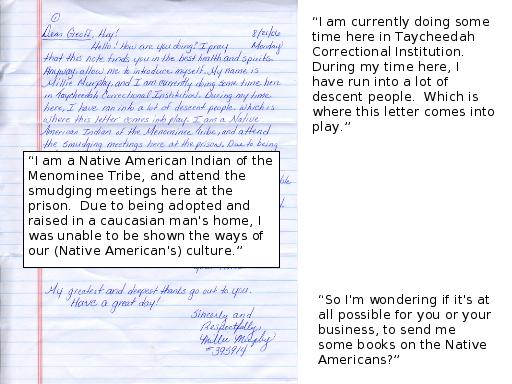 ①
Dear Geoff, Hay!
8/21/06
Monday
Hello! How are you doing? I pray
that this note finds you in the best health and spirits.
Anyway, allow me to introduce myself. My name is
Millie Murphy, and I am currently doing some time here
in Taycheedah Correctional Institution. During my time
here, I have ran into a lot of descent people. Which is
where this letter comes into play. I am a Native
American Indian of the Menominee Tribe, and attend
the smudging meetings here at the prison. Due to being
“I am a Native American Indian of the
Menominee Tribe, and attend the
smudging meetings here at the
prison.  Due to being adopted and
raised in a caucasian man's home, I
was unable to be shown the ways of
our (Native American's) culture.”
My greatest and deepest thanks go out to you.
Have a great day!
Sincerly and
Respectfully,
Millie Murphy
“I am currently doing some
time here in Taycheedah
Correctional Institution.
During my time here, I
have run into a lot of
descent people.  Which is
where this letter comes into
play.”
“So I'm wondering if it's at
all possible for you or your
business, to send me
some books on the Native
Americans?”